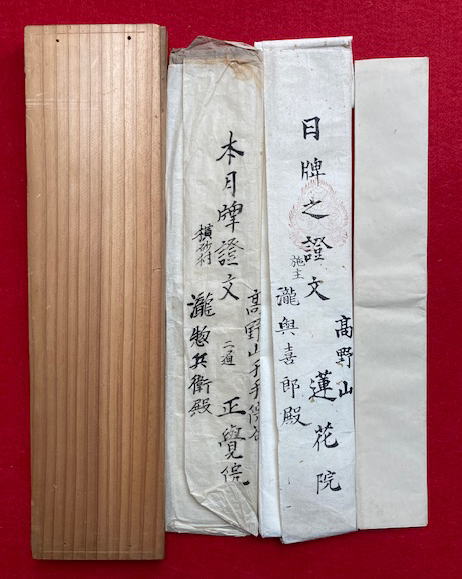 日牌之證文
高野山
蓮花院
施主
瀧與喜郎殿
本月牌證文
二通
高野山千手院谷
正覺院
横砂村
瀧惣兵衛殿